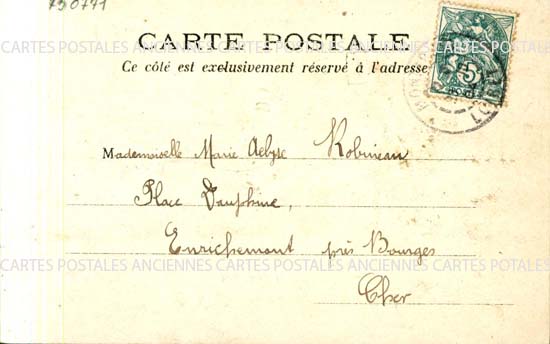 CARTE POSTALE
Ce côté est exclusivement réservé à l'adresse
CARTES POSTALES ANCIENNES CARTES POSTALES ANCIENNES CARTES POSTALES
5
Mademoiselle Marie Robineau
Place Dauphine,
Enrichemont près Bourges
CARTES POSTALES ANCIENNES CARTES POSTALES ANCIENNES CARTES POTALES
Cher